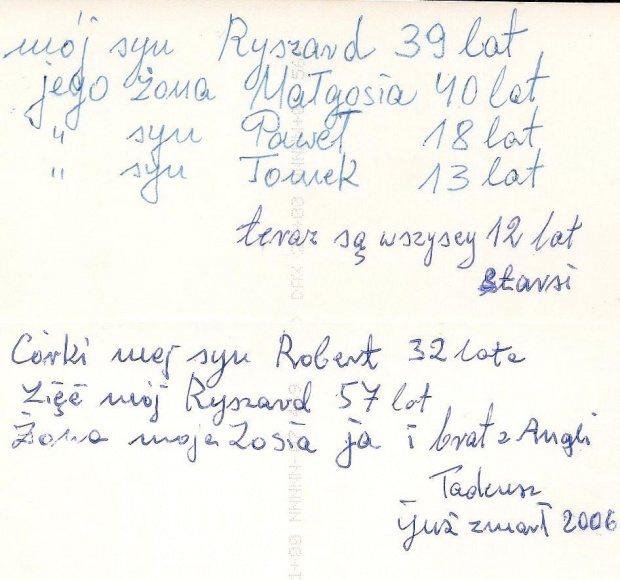 mój syn Ryszard 39 lat
jego żona Małgosia 40 lat
" syn Paweł 18 lat
" syn Tomek 13 lat
teraz są wszyscy 12 lat
starsi
Córki mej syn Robert 32 lata
Zięć mój Ryszard 57 lat
Żona moja Zosia ja i brat z Angli
Tadeusz
już zmarł 2006